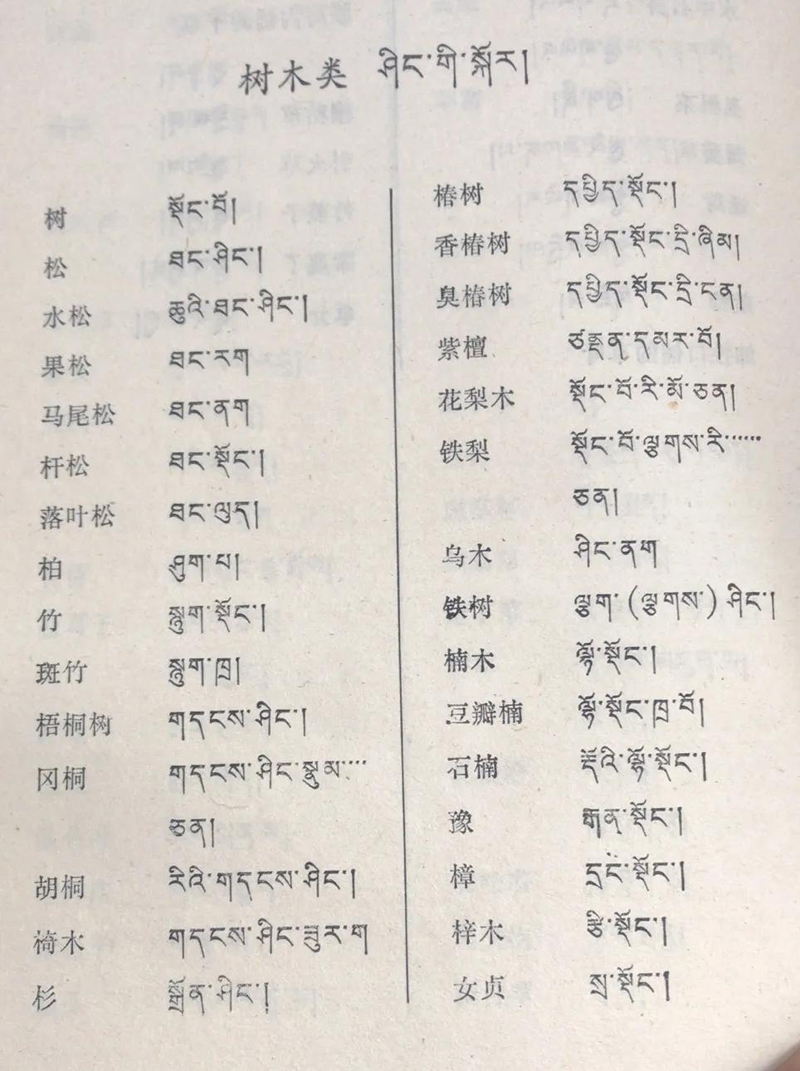 树木类 ཤིང་གི་སྐོར།
树 སྡོང་བོ།
松 ཐང་ཤིང་།
水松 ཆུའི་ཐང་ཤིང་།
果松 ཐང་རག
马尾松 ཐང་ནག
杆松 ཐང་སྡོང་།
落叶松 ཐང་ལུད།
柏 ཤུག་པ།
竹 སྨྱུག་སྡོང་།
斑竹 སྨྱུག་ཁྲ།
梧桐树 གདངས་ཤིང་།
冈桐 གདངས་ཤིང་སྣུམ་····
ཅན།
胡桐 རིའི་གདངས་ཤིང་།
椅木 གདངས་ཤིང་ཟུར་ག
杉 སྒྲོན་ཤིང་།
椿树 དཔྱིད་སྡོང་།
香椿树 དཔྱིད་སྡོང་དྲི་ཞིམ།
臭椿树 དཔྱིད་སྡོང་དྲི་ངན།
紫檀 ཙནྡན་དམར་བོ།
花梨木 སྡོང་བོ་རི་མོ་ཅན།
铁梨 སྡོང་བོ་ལྕགས་རི་·····
ཅན།
乌木 ཤིང་ནག
铁树 ལྕག་(ལྕགས་)ཤིང་།
楠木 ལྷོ་སྡོང་།
豆瓣楠 ལྷོ་སྡོང་ཁྲ་བོ།
石楠 རྡོའི་ལྷོ་སྡོང་།
豫 རྒན་སྡོང་།
樟 དྲང་སྡོང་།
梓木 རྩི་སྡོང་།
女贞 སྲ་སྡོང་།